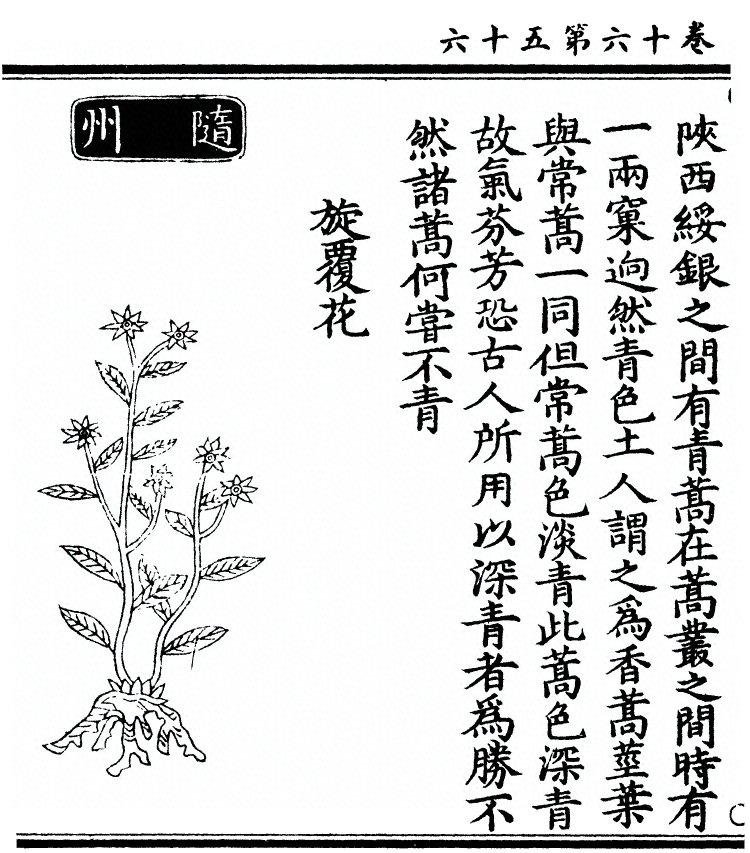 卷十六第五十六
陝西綏銀之間有青蒿在蒿叢之間時有
一兩窠迥然青色土人謂之爲香蒿莖葉
與常蒿一同但常蒿色淡青此蒿色深青
故氣芬芳恐古人所用以深青者爲勝不
然諸蒿何嘗不青
旋覆花
隨州